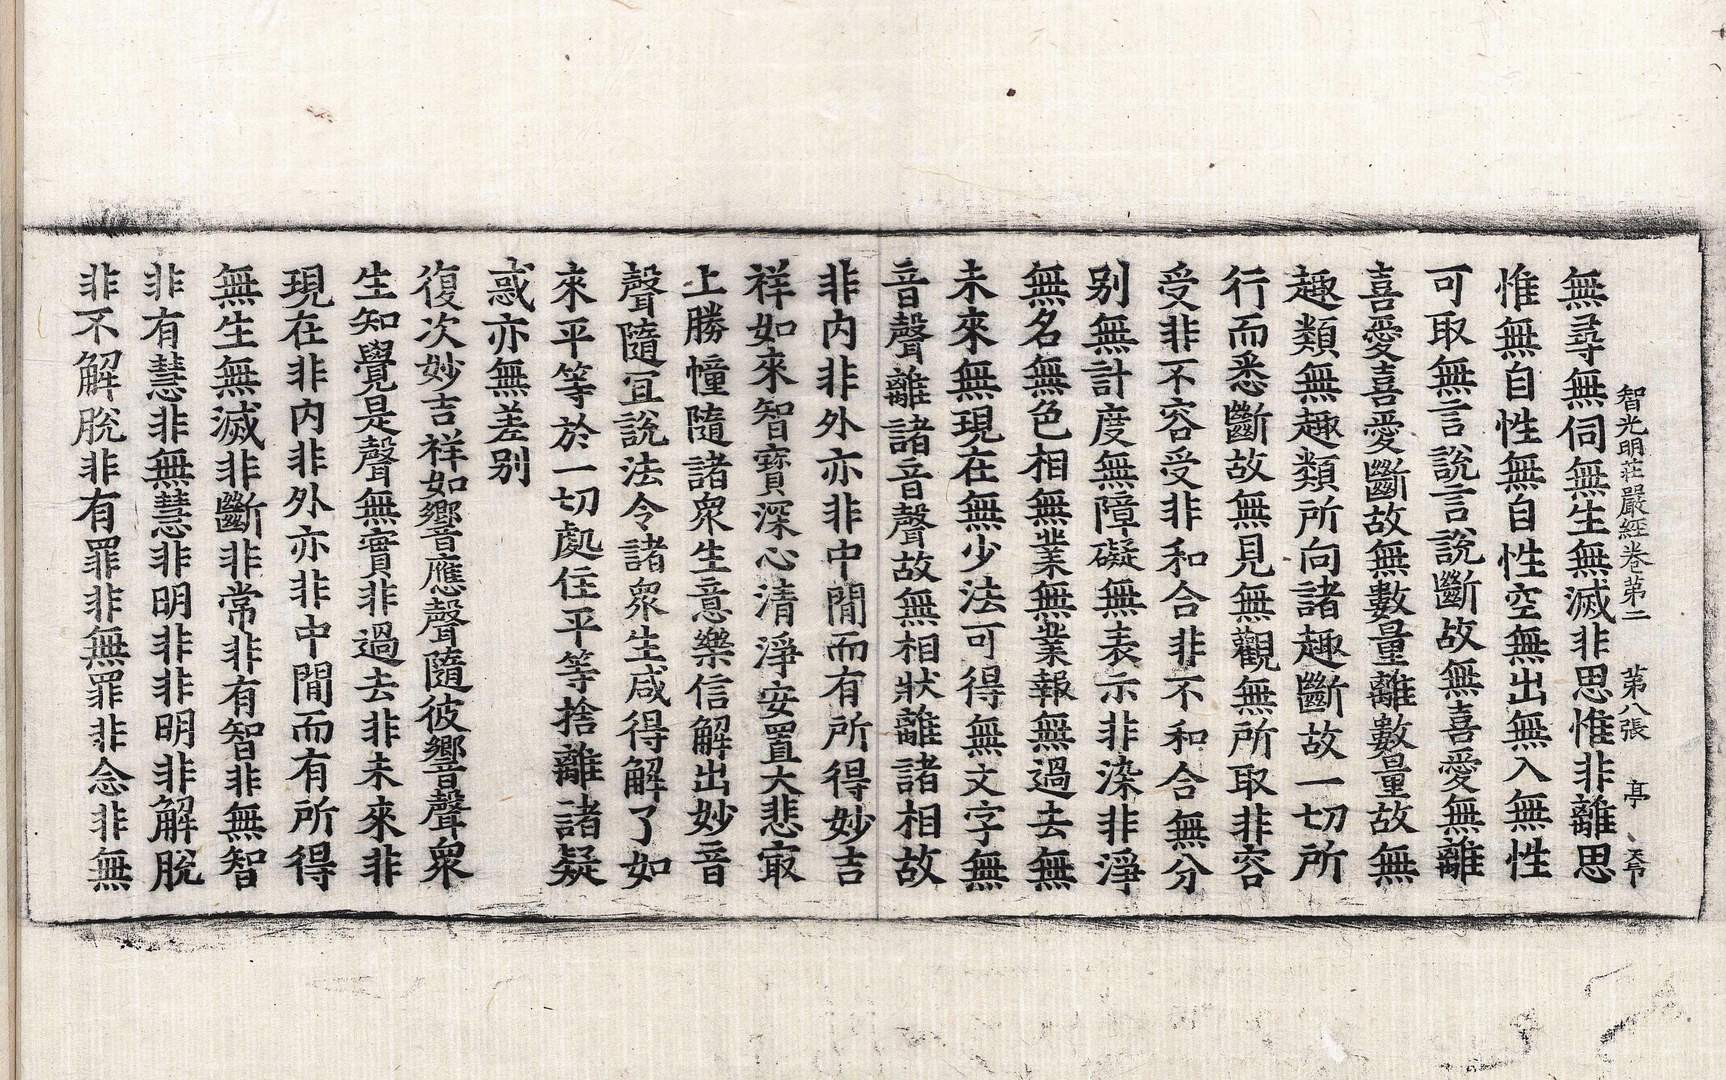 智光明莊嚴經卷第二 第八張 亭
無尋無伺無生無滅非思惟非離思
惟無自性無自性空無出無入無性
可取無言說言說斷故無喜愛無離
喜愛喜愛斷故無數量離數量故無
趣類無趣類所向諸趣斷故一切所
行而悉斷故無見無觀無所取非容
受非不容受非和合非不和合無分
别無計度無障礙無表示非染非淨
無名無色相無業無業報無過去無
未來無現在無少法可得無文字無
音聲離諸音聲故無相狀離諸相故
非内非外亦非中閒而有所得妙吉
祥如來智寶深心清淨安置大悲㝡
上勝幢隨諸衆生意樂信解出妙音
聲隨宜說法令諸衆生咸得解了如
來平等於一切處住平等捨離諸疑
惑亦無差别
復次妙吉祥如響應聲隨彼響聲衆
生知覺是聲無實非過去非未來非
現在非内非外亦非中閒而有所得
無生無滅非斷非常非有智非無智
非有慧非無慧非明非非明非解脫
非不解脫非有罪非無罪非念非無